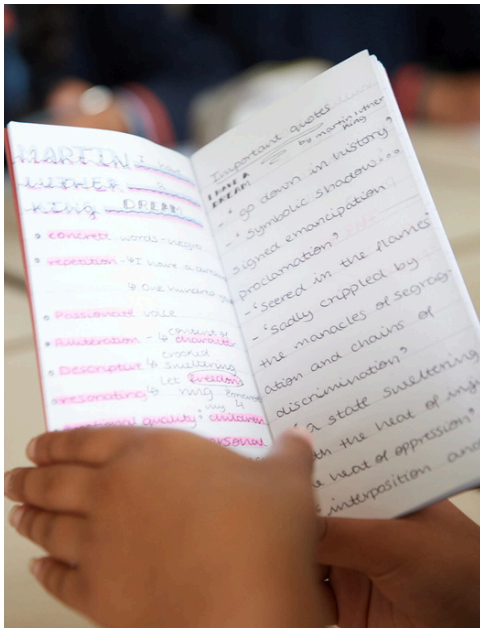 MARTIN I had
LUTHER
KING DREAM
• concrete words - negro
• repetition - ↳ I have a dream
↳ One hundred
• Passionate voice
• Alliteration - ↳ content of character
• Descriptive ↳ crooked
sweltering
Let freedom
• resonating ↳ ring
my 4
quality" children
personal
Important quotes
by martin luther
king
I HAVE A
DREAM!
- ' go down in history'
- ' symbolic shadow...
signed emancipation
proclamation'
- 'seered in the flames'
- 'sadly crippled by
the manacles of segreg-
ation and chains of
discrimination'
'a state sweltering
the heat of
heat of oppression'
'interposition and